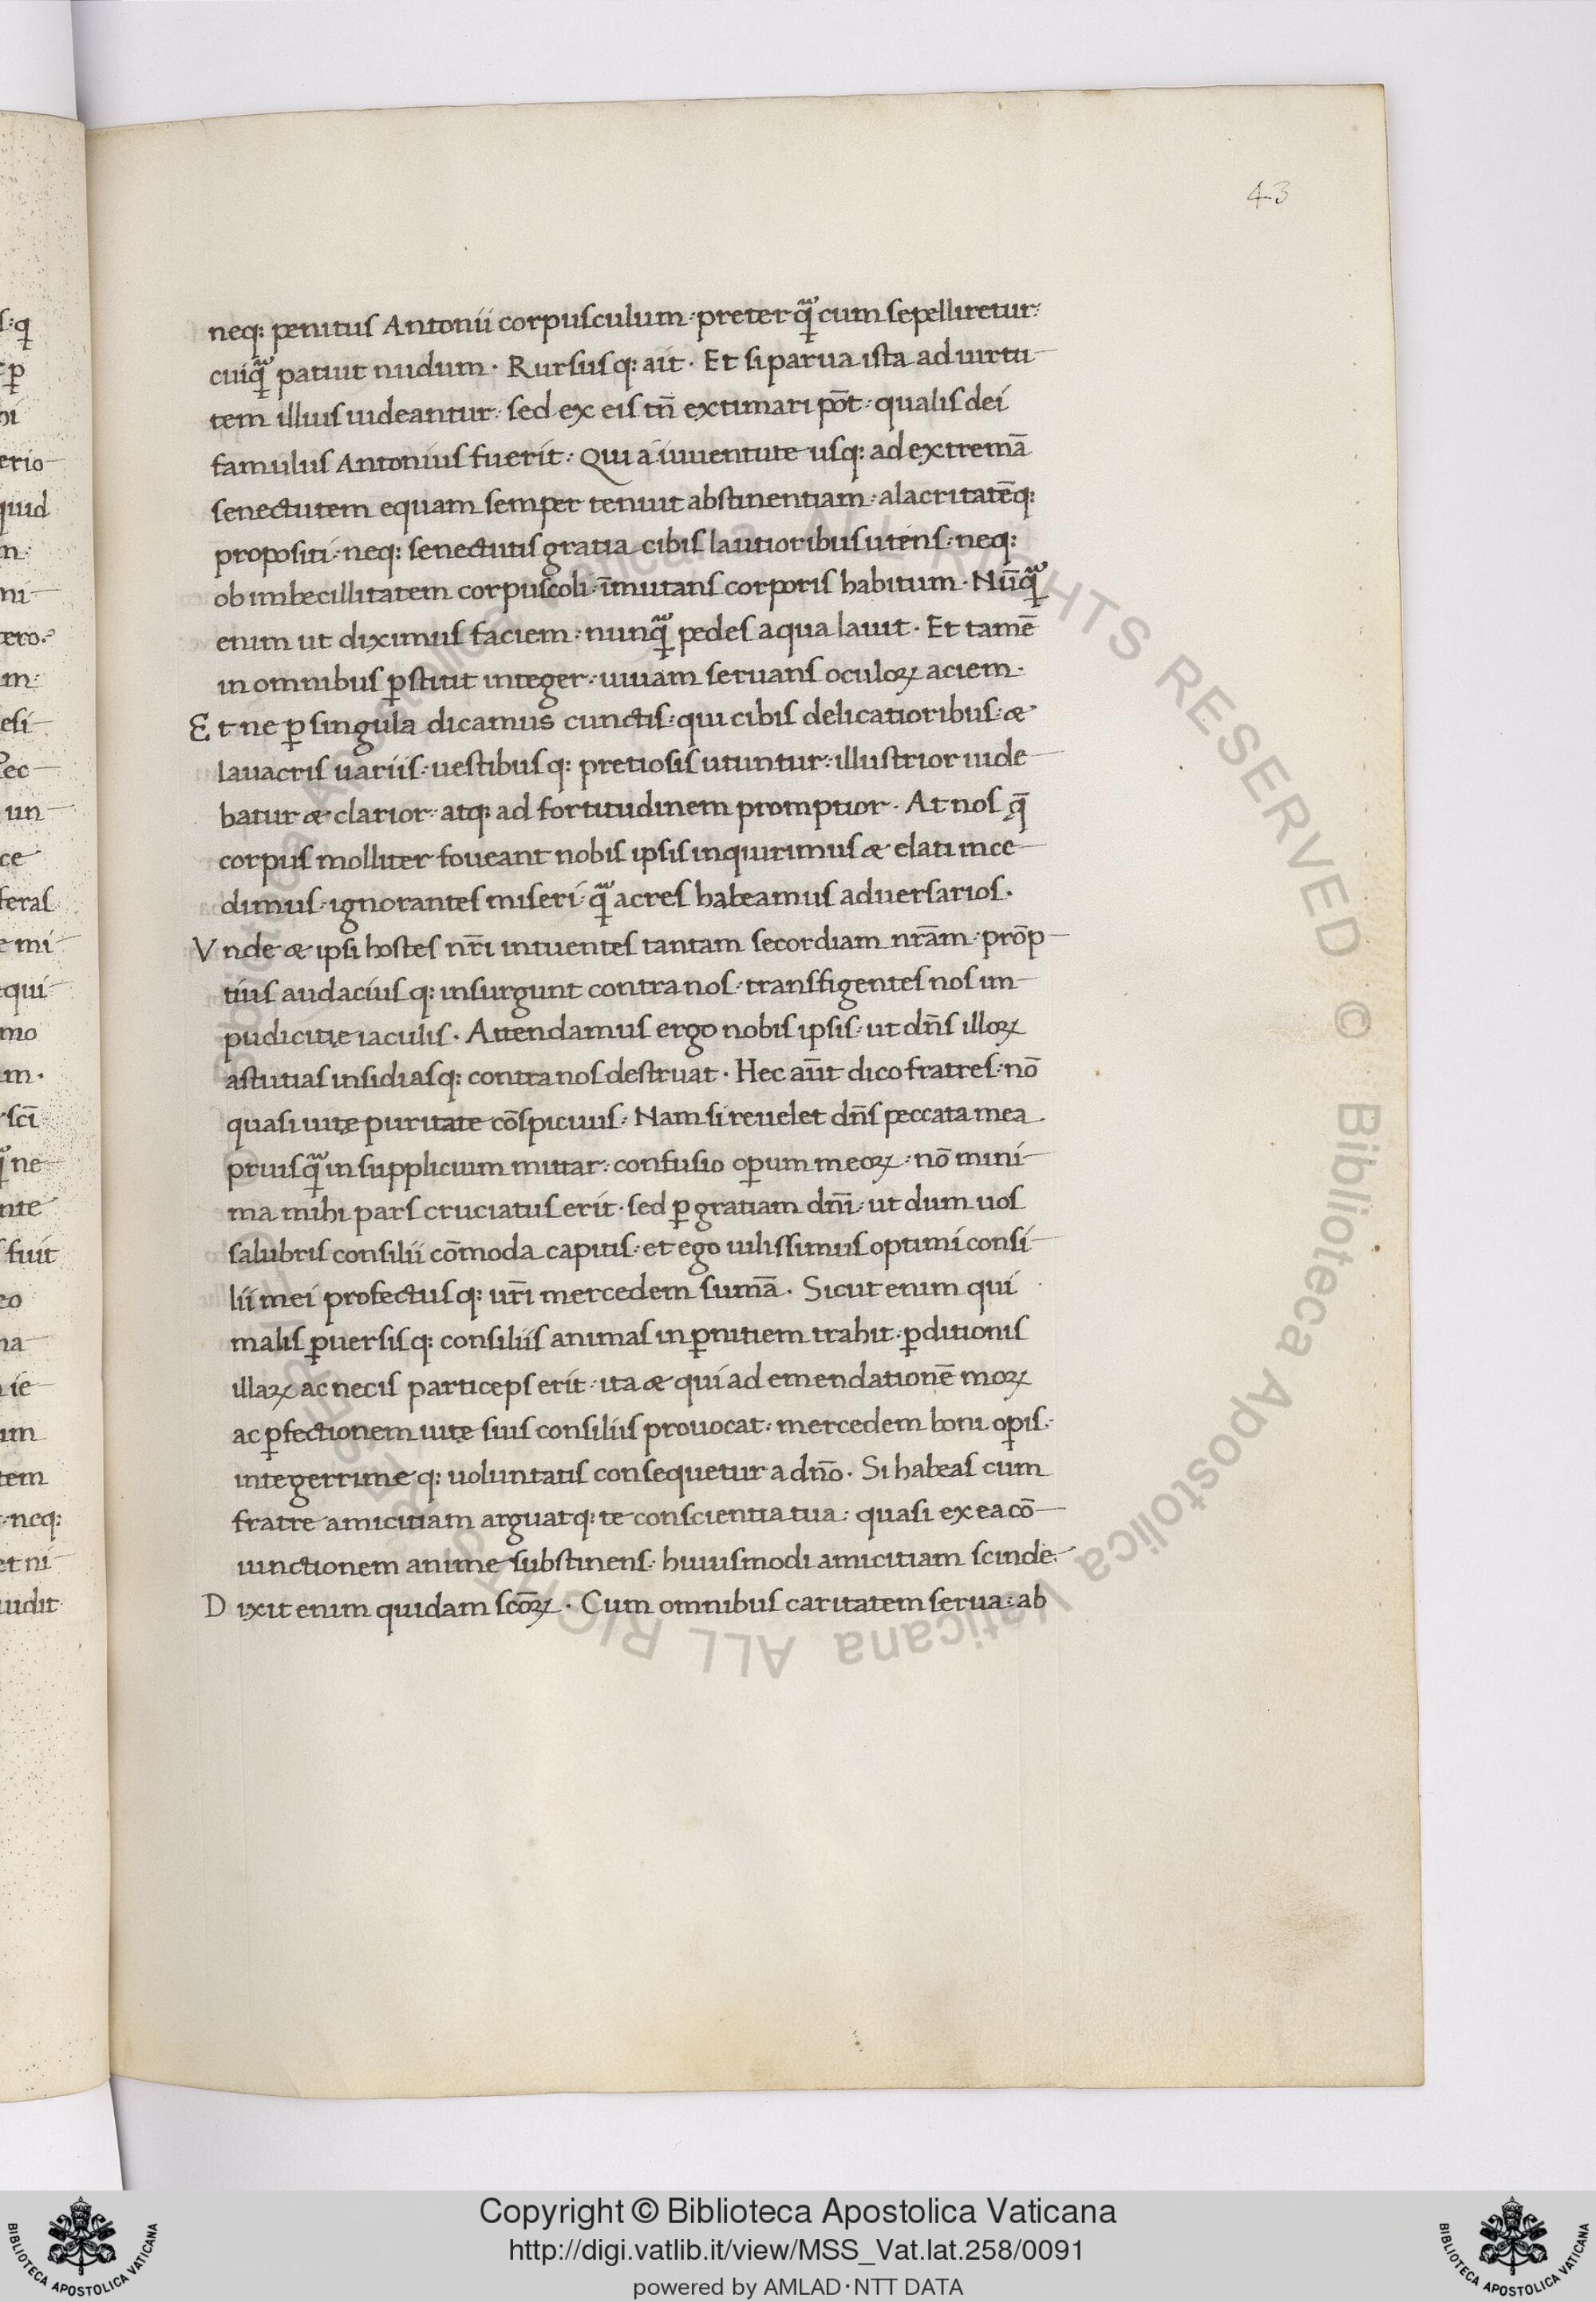 43
neq: penitus Antonii corpusculum: preter qᷓ cum sepelliretur:
cuiqᷓ patuit nudum. Rursusq: ait. Et si parua ista ad uirtu-
tem illius uideantur: sed ex eis tn̄ extimari pōt: qualis dei
famulus Antonius fuerit: Qui a iuuentute usq: ad extremā
senectutem equam semper tenuit abstinentiam: alacritatēq:
propositi: neq: senectutis gratia cibis lautioribus utens: neq:
ob imbecillitatem corpuscoli: īmutans corporis habitum. Nūqᷓ
enim ut diximus faciem: nunqᷓ pedes aqua lauit. Et tamē
in omnibus ꝑstitit integer: uiuam seruans oculoꝝ aciem.
Et ne ꝑ singula dicamus cunctis: qui cibis delicatioribus: æ
lauacris uariis: uestibusq: pretiosis utuntur: illustrior uide-
batur æ clarior: atq: ad fortitudinem promptior. At nos q̄
corpus molliter foueant nobis ipsis inquirimus æ elati ince-
dimus: ignorantes miseri: qᷓ acres habeamus aduersarios.
Vnde æ ipsi hostes nr̄i intuentes tantam secordiam nr̄am: prōp-
tius audaciusq: insurgunt contra nos: transfigentes nos im-
pudicitię iaculis. Attendamus ergo nobis ipsis: ut dn̄s illoꝝ
astutias insidiasq: contra nos destruat. Hec aūt dico fratres: nō
quasi uitę puritate cōspicuus: Nam si reuelet dn̄s peccata mea
priusqᷓ in supplicium mittar: confusio oꝑum meoꝝ: nō mini-
ma mihi pars cruciatus erit. sed ꝑ gratiam dn̄i: ut dum uos
salubris consilii cōmoda capitis: et ego uilissimus optimi consi-
lii mei profectusq: ur̄i mercedem sumā. Sicut enim qui
malis ꝑuersisq: consiliis animas in ꝑnitiem trahit: ꝑditionis
illaꝝ ac necis particeps erit: ita æ qui ad emendationē moꝝ
ac ꝑfectionem uitę suis consiliis prouocat: mercedem boni oꝑis:
integerrimeq: uoluntatis consequetur a dn̄o. Si habeas cum
fratre amicitiam arguatq: te conscientia tua: quasi ex ea cō-
iunctionem anime substinens: huiusmodi amicitiam scinde:
Dixit enim quidam scōꝝ. Cum omnibus caritatem serua: ab
Copyright © Biblioteca Apostolica Vaticana
http://digi.vatlib.it/view/MSS_Vat.lat.258/0091
powered by AMLAD·NTT DATA